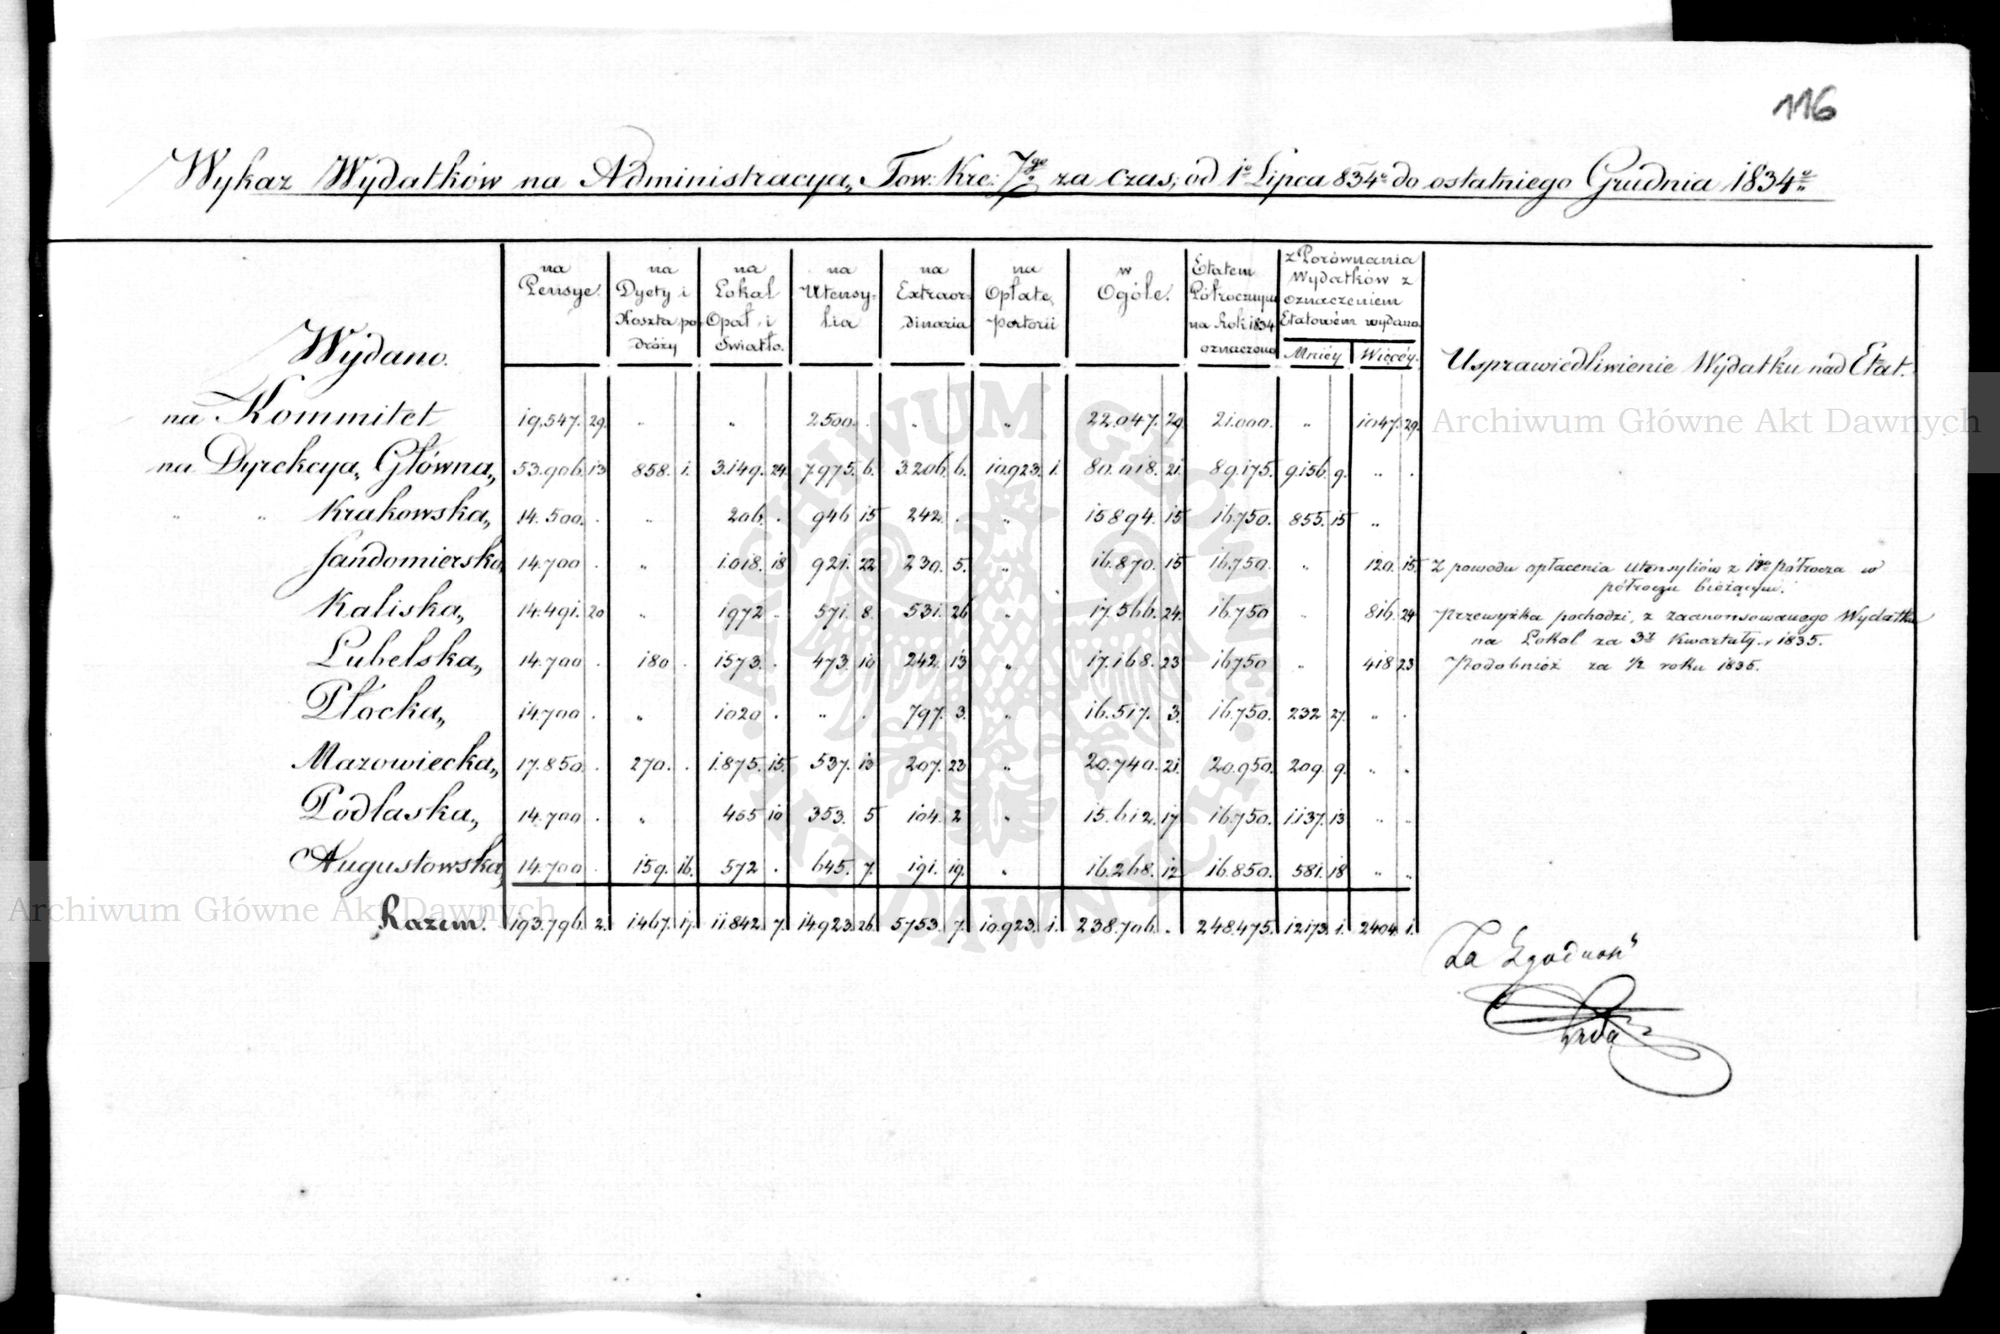 116
Wykaz Wydatków na Administracyą Tow: Kre: Zgo za czas, od 1o Lipca 834o do ostatniego Grudnia 1834o
Wydano.
na Pensye.
na Dyety i Koszta podróży
na Lokal Opał, i Światło.
na Utensylia
na Extraordinaria
na Opłatę portorii
w Ogóle.
Etatem Półrocznym na Rok 1834 oznaczono
z Porównania Wydatków z oznaczeniem Etatowém wydano
Mniéy | Więcéy.
Usprawiedliwienie Wydatku nad Etat.
na Kommitet 19,547. 29. " " 2500. . " " 22.047. 29 21.000. " 1047. 29.
na Dyrekcyą Główną 53.906. 13 858. 1. 3.149. 24. 7975. 6. 3.206. 6. 10.923. 1. 80.018. 21. 89.175. 9.156. 9. " .
" " Krakowską 14.500. . " 206. . 946 15 242. . " 15894. 15 16.750. 855. 15 "
Sandomierską 14.700 . " 1.018. 18 921. 22 230. 5. " 16.870. 15 16.750. " 120. 15. Z powodu opłacenia Utensyliów z 1go półrocza w
półroczu bieżącym.
Kaliską 14.491. 20 " 1972 . 571. 8. 531. 26 " 17.566. 24. 16.750 " 816. 24 Przewyżka pochodzi, z zaanonsowanego Wydatku
na Lokal za 3y Kwartały r 1835.
Lubelską 14.700 . 180 . 1573. . 473. 10 242. 13 " 17.168. 23 16750 " 418 23 Podobnież za 1/2 roku 1835.
Płocką 14.700 . " 1020 . " . 797. 3. " 16.517. 3. 16.750. 232 27. " .
Mazowiecką 17.850. . 270. . 1.875. 15. 537. 13 207. 23 " 20.740. 21. 20.950. 209. 9. " "
Podlaską 14.700 . " 455 10 353. 5 104. 2 " 15.612. 17 16.750. 1.137. 13 " "
Augustowską 14.700 . 159. 16. 572 . 645. 7. 191. 19. " 16.268. 12 16.850. 581. 18 " "
Razem. 193.796. 2. 1467. 17. 11.842 7. 14.923 26. 5753. 7. 10.923. 1. 238.706. . 248.475. 12173. 1. 2404 1.
Za Zgodność
Archiwum Główne Akt Dawnych
Archiwum Główne Akt Dawnych
ARCHIWUM GŁÓWNE · AKT DAWNYCH ·